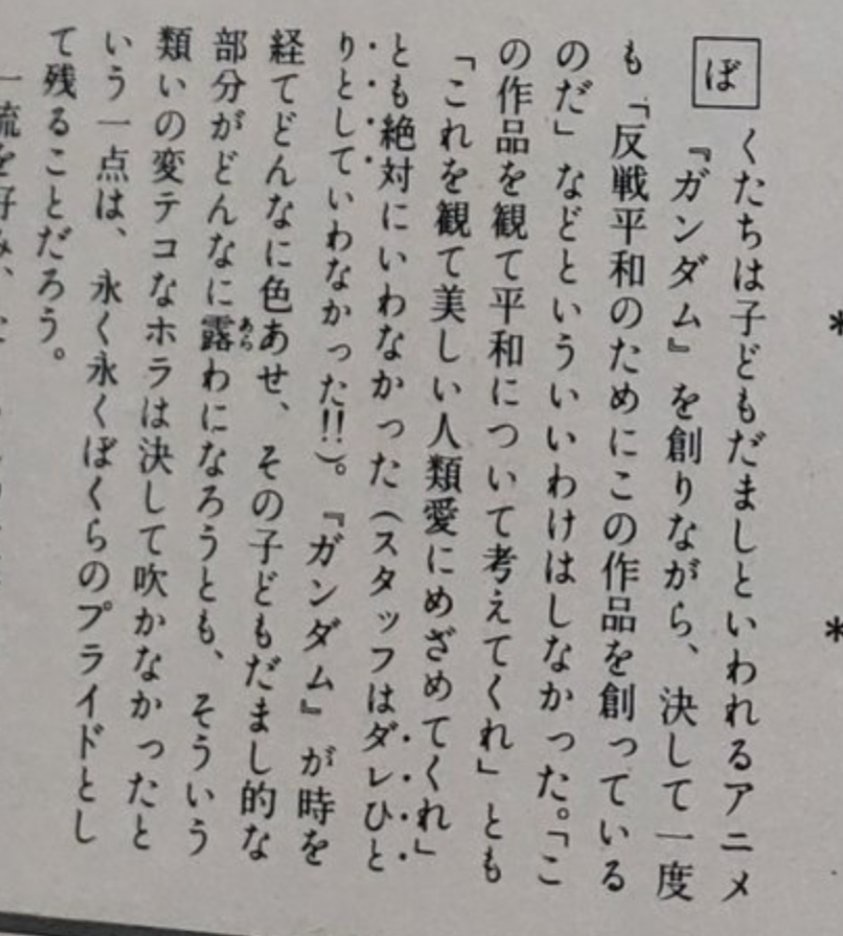 ぼくたちは子どもだましといわれるアニメ
『ガンダム』を創りながら、決して一度
も「反戦平和のためにこの作品を創っている
のだ」などといういいわけはしなかった。「こ
の作品を観て平和について考えてくれ」とも
「これを観て美しい人類愛にめざめてくれ」
とも絶対にいわなかった（スタッフはダレひと
りとしていわなかった!!）。『ガンダム』が時を
経てどんなに色あせ、その子どもだまし的な
部分がどんなに露わになろうとも、そういう
あら
類いの変テコなホラは決して吹かなかったと
いう一点は、永く永くぼくらのプライドとし
て残ることだろう。
一流を好み、